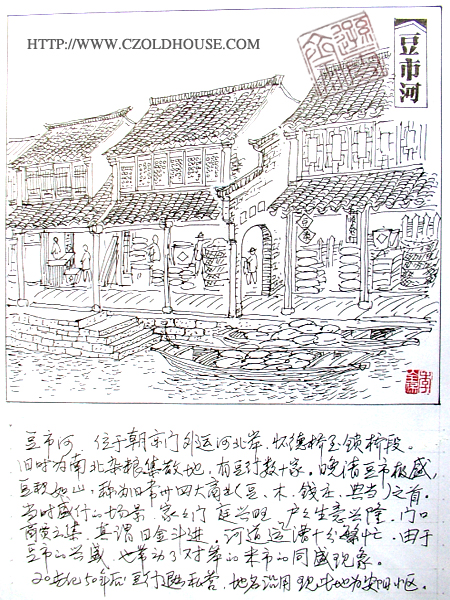 HTTP://WWW.CZOLDHOUSE.COM
豆市河
豆市河 位于朝京门外运河北岸, 怀德桥至锁桥段。
旧时为南北杂粮集散地, 有豆行数十家, 晚清豆市极盛,
豆积如山, 称为旧常州四大商业(豆、木、钱庄、典当)之首。
当时盛行的场景 家家门庭兴旺, 户户生意兴隆, 门口
商贾云集, 真谓日金斗进。河道运诸十分繁忙。由于
豆市的兴盛, 也带动了对岸的米市的同盛现象。
20世纪50年后 豆行歇私营, 地名沿用 现此地为安阳小区。